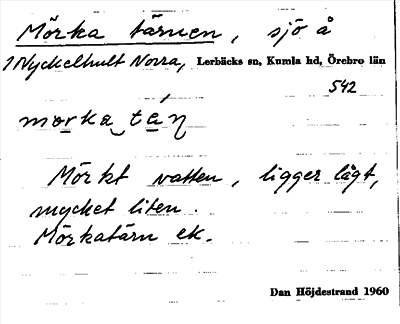 Mörka tärnen, sjö å
1 Nyckelhult Norra, Lerbäcks sn, Kumla hd, Örebro län
542
morka tá̱ṇ
Mörkt vatten, ligger lågt,
mycket liten.
Mörkatärn ek.
Dan Höjdestrand 1960